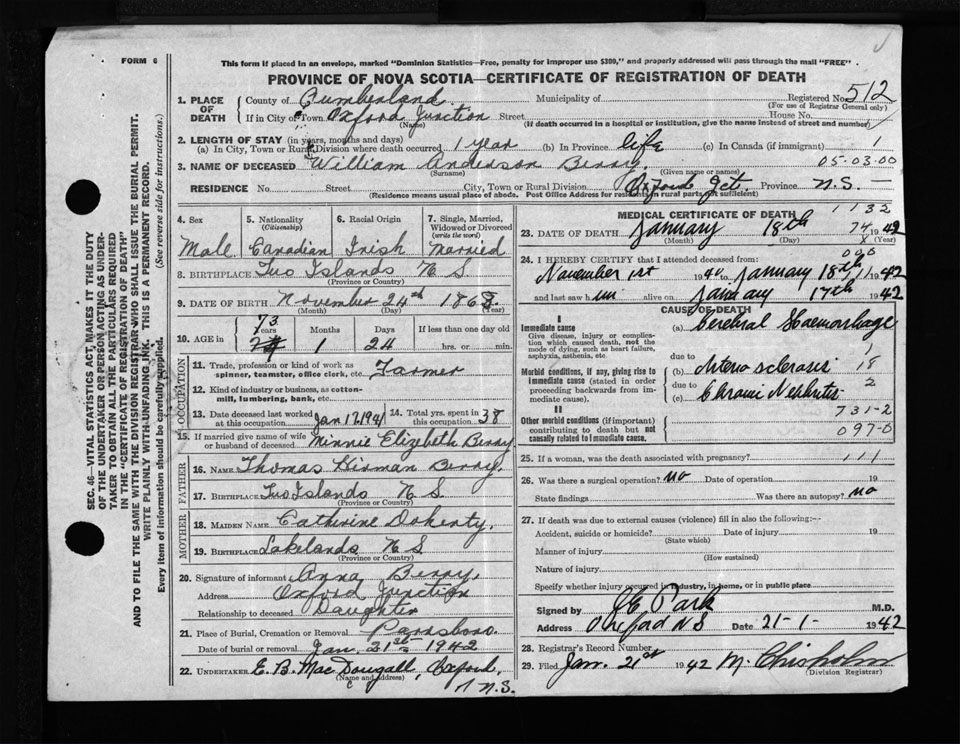 FORM 6
This form if placed in an envelope, marked "Dominion Statistics—Free, penalty for improper use $300," and properly addressed will pass through the mail "FREE".
PROVINCE OF NOVA SCOTIA—CERTIFICATE OF REGISTRATION OF DEATH
1. PLACE OF DEATH County of Cumberland Municipality of Registered No. 512
(For use of Registrar General only)
If in City or Town Oxford Junction Street House No.
(Name) (If death occurred in a hospital or institution, give the name instead of street and number)
2. LENGTH OF STAY (in years, months and days)
(a) In City, Town or Rural Division where death occurred 1 year (b) In Province life (c) In Canada (if immigrant) 1
3. NAME OF DECEASED William Anderson Berry 05-03-00
(Surname) (Given name or names)
RESIDENCE No. Street City, Town or Rural Division Oxford Jct. Province N.S.
(Residence means usual place of abode. Post Office Address for residents in rural parts not sufficient)
4. Sex 5. Nationality (Citizenship) 6. Racial Origin 7. Single, Married, Widowed or Divorced (write the word)
Male Canadian Irish Married
8. BIRTHPLACE Two Islands N S
(Province or Country)
9. DATE OF BIRTH November 24th 1868
(Month) (Day) (Year)
10. AGE in 73 Years Months Days If less than one day old
1 24 hrs. or min.
OCCUPATION
11. Trade, profession or kind of work as spinner, teamster, office clerk, etc. Farmer
12. Kind of industry or business, as cotton-mill, lumbering, bank, etc.
13. Date deceased last worked at this occupation Jan 17, 1941 14. Total yrs. spent in this occupation 38
15. If married give name of wife or husband of deceased Minnie Elizabeth Berry
FATHER
16. NAME Thomas Hirman Berry
17. BIRTHPLACE Two Islands N S
(Province or Country)
MOTHER
18. MAIDEN NAME Catherine Doherty
19. BIRTHPLACE Lakelands N S
(Province or Country)
20. Signature of informant Anna Berry
Address Oxford Junction
Relationship to deceased Daughter
21. Place of Burial, Cremation or Removal Parrsboro
Date of burial or removal Jan. 21st 1942
22. UNDERTAKER E. B. MacDougall, Oxford, N.S.
(Name and address)
MEDICAL CERTIFICATE OF DEATH 1132
23. DATE OF DEATH January 18th 74 1942
(Month) (Day) (Year)
24. I HEREBY CERTIFY that I attended deceased from:
November 1st 1940 to January 18th 1942
and last saw him alive on January 17th 1942
CAUSE OF DEATH
I
Immediate cause (a) Cerebral Haemorrhage
Give disease, injury or complication which caused death, not the mode of dying, such as heart failure, asphyxia, asthenia, etc.
due to 1
Morbid conditions, if any, giving rise to immediate cause (stated in order proceeding backwards from immediate cause).
(b) Arterio sclerosis 18
due to 2
(c) Chronic Nephritis
II
Other morbid conditions (if important) contributing to death but not causally related to immediate cause.
731-2
097-0
25. If a woman, was the death associated with pregnancy? 111
26. Was there a surgical operation? No Date of operation 19
State findings Was there an autopsy? no
27. If death was due to external causes (violence) fill in also the following:—
Accident, suicide or homicide? Date of injury 19
(State which)
Manner of injury
(How sustained)
Nature of injury
Specify whether injury occurred in industry, in home, or in public place
Signed by J E Park M.D.
Address Oxford N S Date 21-1- 1942
28. Registrar's Record Number
29. Filed Jan. 21st 1942 M. Chisholm
(Division Registrar)
SEC. 46—VITAL STATISTICS ACT, MAKES IT THE DUTY
OF THE UNDERTAKER OR PERSON ACTING AS UNDER-
TAKER TO OBTAIN ALL THE PARTICULARS REQUIRED
IN THE "CERTIFICATE OF REGISTRATION OF DEATH"
AND TO FILE THE SAME WITH THE DIVISION REGISTRAR WHO SHALL ISSUE THE BURIAL PERMIT.
WRITE PLAINLY WITH UNFADING INK. THIS IS A PERMANENT RECORD.
Every item of information should be carefully supplied. (See reverse side for instructions.)